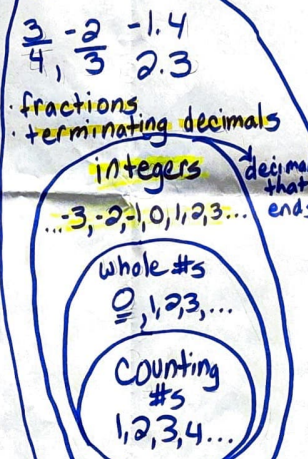 3/4, -2/3 -1.4
2.3
· fractions
· terminating decimals
integers
decima
that
ends
...-3,-2,-1,0,1,2,3...
whole #s
0,1,2,3,...
Counting
#s
1,2,3,4...